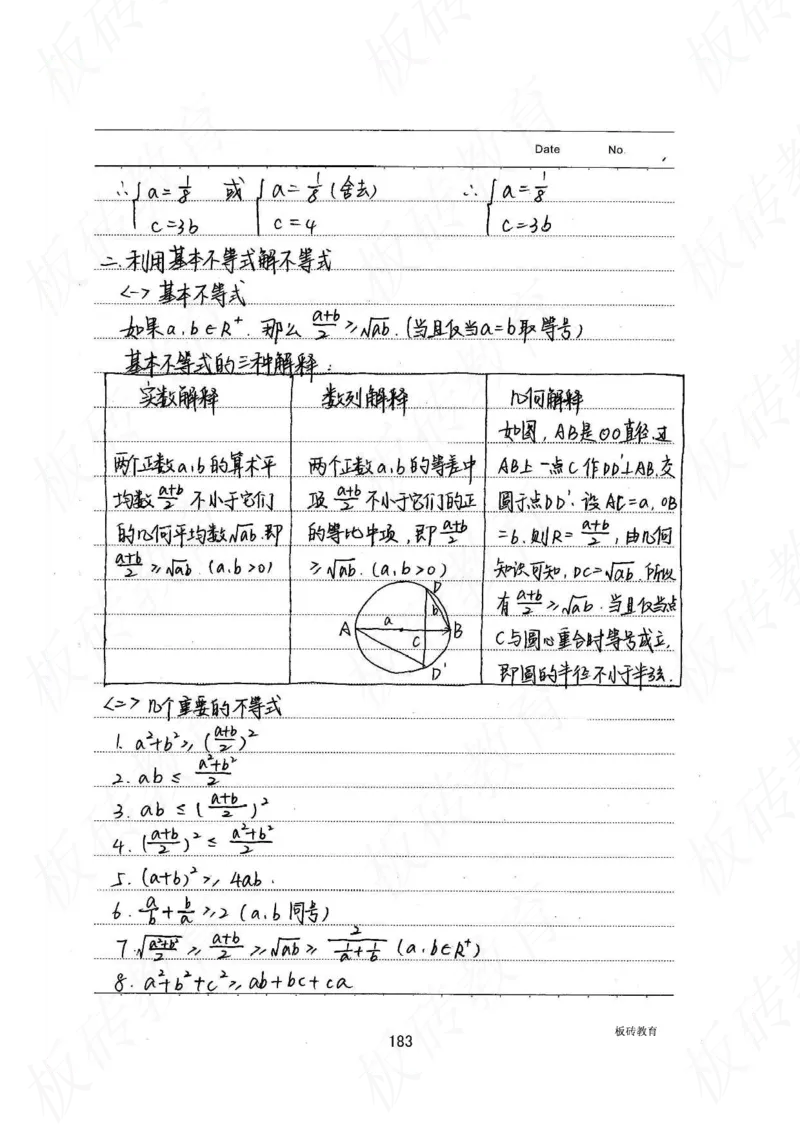 Date No.
∴{a=1/8 或 {a=1/8(舍去) ∴{a=1/8
{c=3b {c=4 {c=3b
二.利用基本不等式解不等式
<一>基本不等式
如果a,b∈R⁺,那么 (a+b)/2 ≥√ab.(当且仅当a=b取等号)
基本不等式的三种解释:
实数解释
两个正数a,b的算术平
均数 (a+b)/2 不小于它们
的几何平均数√ab.即
(a+b)/2 ≥√ab.(a,b>0)
数列解释
两个正数a,b的等差中
项 (a+b)/2 不小于它们的正
的等比中项,即 (a+b)/2
≥√ab.(a,b>0)
A a C b B D D'
几何解释
如图,AB是⊙O直径,过
AB上一点C作DD'⊥AB,交
圆于点DD'.设AC=a,OB
=b.则R= (a+b)/2 ,由几何
知识可知,DC=√ab.所以
有 (a+b)/2 ≥√ab.当且仅当点
C与圆心重合时等号成立,
即圆的半径不小于半弦.
<二>几个重要的不等式
1. a²+b²≥((a+b)/2)²
2. ab ≤ (a²+b²)/2
3. ab ≤ ((a+b)/2)²
4. ((a+b)/2)² ≤ (a²+b²)/2
5. (a+b)²≥4ab.
6. a/b + b/a ≥2 (a,b同号)
7. √((a²+b²)/2) ≥ (a+b)/2 ≥√ab≥ 2/(1/a+1/b) (a,b∈R⁺)
8. a²+b²+c²≥ab+bc+ca
板砖教育
183